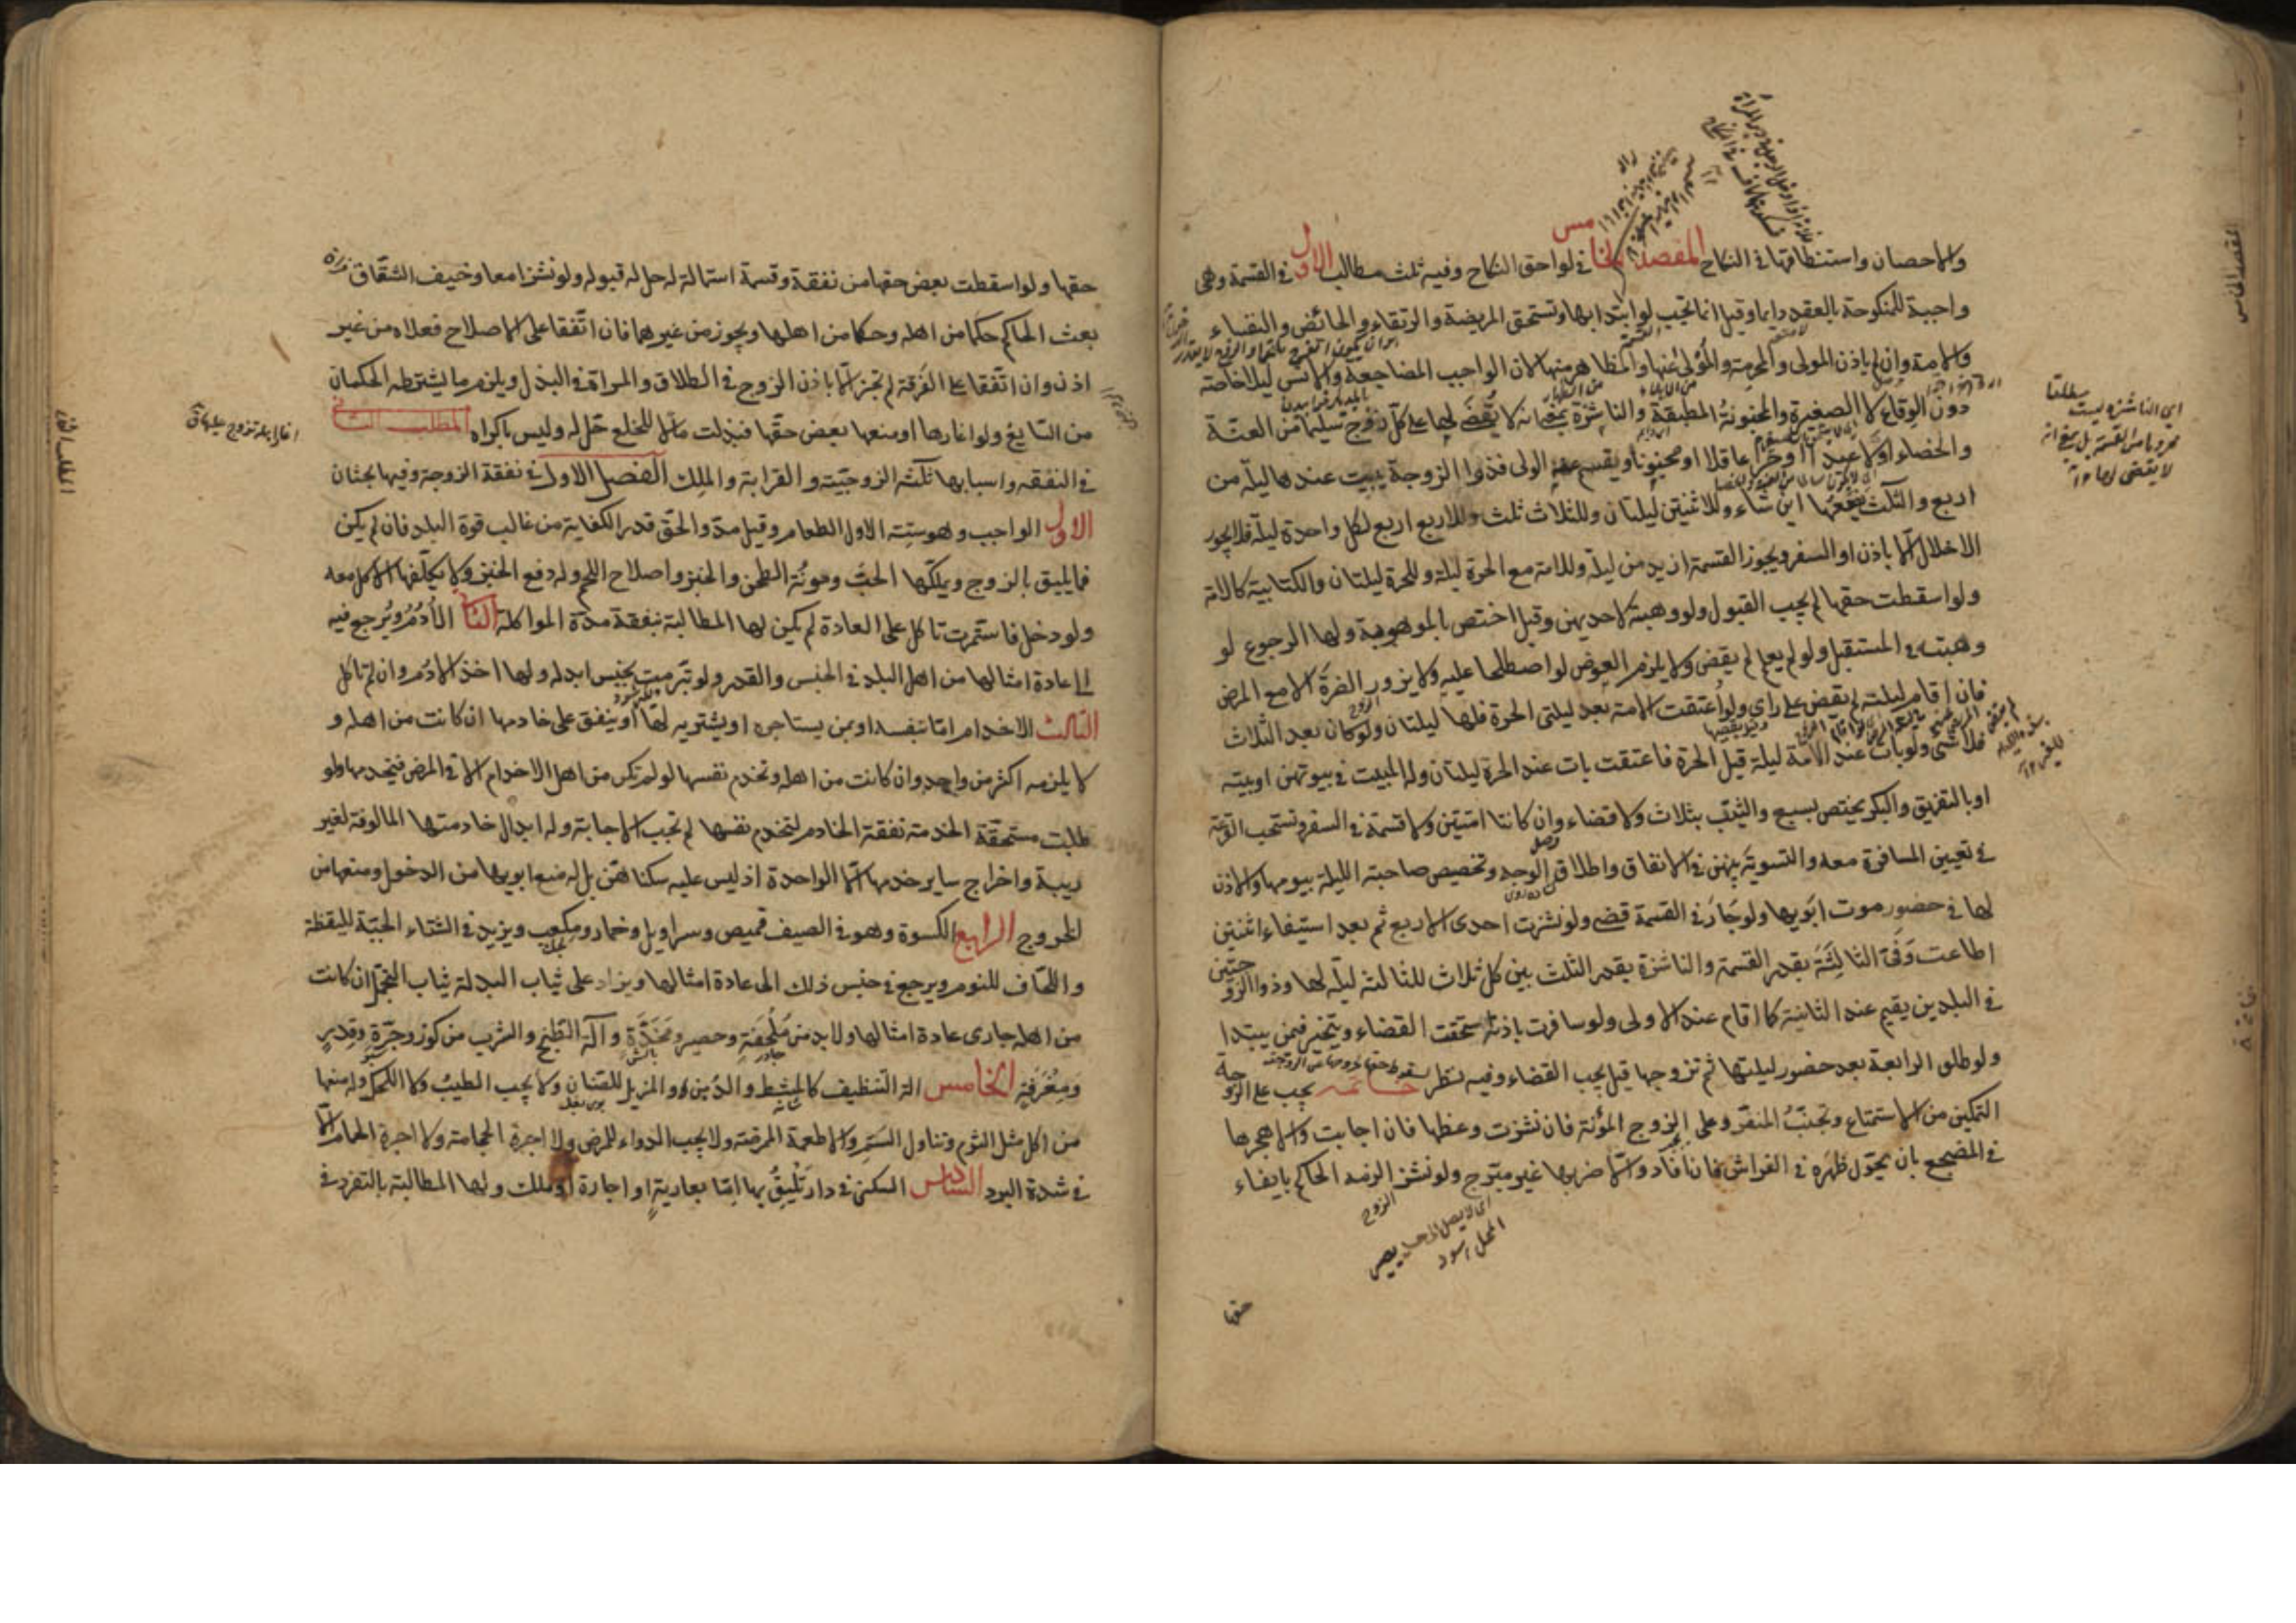 والاحصان واستنطاقها في النكاح المقصد الخامس في لواحق النكاح وفيه ثلث مطالب الاول في القسمة وهي
واجبة للمنكوحة بالعقد دايما وقيل انما تجب لو ابتدا بها وتستحق المريضة والرتقاء والحائض والنفساء
والامة وان لم ياذن المولى والمحرمة والمولى عنها والمظاهر منها لان الواجب المضاجعة والانس ليلا خاصة
دون الوقاع لا الصغيرة والمجنونة المطبقة والناشزة بمعنى انه لا يقضى لها على كل زوج سليما من العنة
والخصاء اولا عبدا او حرا عاقلا او مجنونا ويقسم عنه الولى فذوا الزوجة يبيت عندها ليلة من
اربع والثلث يضعها اين شاء وللاثنتين ليلتان وللثلاث ثلث وللاربع اربع لكل واحدة ليلة فلا يجوز
الاخلال الا باذن او السفر ويجوز القسمة ازيد من ليلة وللامة مع الحرة ليلة وللحرة ليلتان والكتابية كالامة
ولو اسقطت حقها لم يجب القبول ولو وهبته لاحديهن وقيل اختص بالموهوبة ولها الرجوع لو
وهبت في المستقبل ولو لم يعلم لم يقض ولا يلزم العوض لو اصطلحا عليه ولا يزور الضرة الا مع المرض
فان اقام ليلته لم يقض على راى ولو اعتقت الامة بعد ليلتى الحرة فلها ليلتان ولو كان بعد الثلاث
فلا شى ولو بات عند الامة ليلة قبل الحرة فاعتقت بات عند الحرة ليلتان وله المبيت في بيوتهن او بيته
او بالتفريق والبكر يختص بسبع والثيب بثلاث ولا قضاء وان كانتا امتين ولا قسمة في السفر وتستحب القرعة
في تعيين المسافرة معه والتسوية بينهن في الانفاق واطلاق الوجه وتخصيص صاحبة الليلة بيومها والاذن
لها في حضور موت ابويها ولو جار في القسمة قضى ولو نشزت احدى الاربع ثم بعد استيفاء اثنتين
اطاعت وفى الثالثة بقدر القسمة والناشزة بقدر الثلث بين كل ثلاث للثالثة ليلة لها وذوا الزوجتين
في البلدين يقيم عند الثانية كما اقام عند الاولى ولو سافرت باذنه استحقت القضاء ويتخير فيمن يبتدا
ولو طلق الرابعة بعد حضور ليلتها ثم تزوجها قيل يجب القضاء وفيه نظر خاتمة يجب على الزوجة
التمكين من الاستمتاع وتجنب المنفر وعلى الزوج المؤنة فان نشزت وعظها فان اجابت والا هجرها
في المضجع بان يحول ظهره في الفراش فان افاد والا ضربها غير مبرح ولو نشز الزمه الحاكم بايفاء
حقها
المقصد الخامس
اى الناشزة ليست مطلقا
لا يقضى لها ١٢
حقها ولو اسقطت بعض حقها من نفقة وقسمة استمالة له حل له قبوله ولو نشزا معا وخيف الشقاق
بعث الحاكم حكما من اهله وحكما من اهلها ويجوز من غيرهما فان اتفقا على الاصلاح فعلاه من غير
اذن وان اتفقا على الفرقة لم تجز الا باذن الزوج في الطلاق والمراة في البذل ويلزم ما يشترطه الحكمان
من السايغ ولو اغارها او منعها بعض حقها فبذلت مالا للخلع حل له وليس باكراه المطلب الثاني
في النفقه واسبابها ثلثه الزوجيته والقرابة والملك الفصل الاول في نفقة الزوجة وفيها بحثان
الاول الواجب وهو ستة الاول الطعام وقيل مد والحق قدر الكفاية من غالب قوة البلد فان لم يكن
فما يليق بالزوج ويملكها الحب ومونة الطحن والخبز واصلاح اللحم وله دفع الخبز ولا يكلفها الاكل معه
ولو دخل فاستمرت تاكل على العادة لم يكن لها المطالبة بنفقة مدة المواكلة الثاني الادم ويرجع فيه
الى عادة امثالها من اهل البلد في الجنس والقدر ولو تبرمت بجنس ابدله ولها اخذ الادم وان لم تاكل
الثالث الاخدام اما بنفسه او بمن يستاجره او يشتريه لها او ينفق على خادمها ان كانت من اهله و
لا يلزمه اكثر من واحد وان كانت من اهله وتخدم نفسها لو لم تكن من اهل الاخدام الا في المرض فيخدمها ولو
طلبت مستحقة الخدمة نفقة الخادم لتخدم نفسها لم تجب الاجابة وله ابدال خادمتها المالوفة لغير
ريبة واخراج ساير خدمها الا الواحدة اذ ليس عليه سكناهن بل له منع ابويها من الدخول ومنعها من
الخروج الرابع الكسوة وهو في الصيف قميص وسراويل وخمار ومكعب ويزيد في الشتاء الجبة لليقظة
واللحاف للنوم ويرجع في جنس ذلك الى عادة امثالها ويزاد على ثياب البدلة ثياب التجمل ان كانت
من اهله جارى عادة امثالها ولا بد من ملحفة وحصير ومخدة وآلة الطبخ والشرب من كوز وجرة وقدر
ومغرفة الخامس الة التنظيف كالمشط والدهن والمزيل للصنان ولا يجب الطيب ولا الكحل وله منعها
من اكل مثل الثوم وتناول السم والاطعمة الممرضة ولا يجب الدواء للمرض ولا اجرة الحجامة ولا اجرة الحمام الا
في شدة البرد السادس السكنى في دار تليق بها اما بعارية او اجارة او ملك ولها المطالبة بالتفرد في
المطلب الثاني